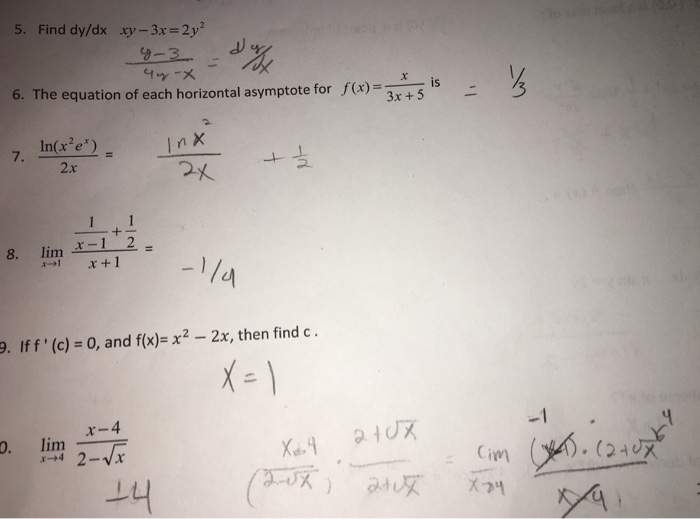 5. Find dy/dx xy − 3x = 2y²
y-3 / 4y-x = dy/dx
6. The equation of each horizontal asymptote for f(x) = x / 3x + 5 is = 1/3
7. ln(x²eˣ) / 2x = lnx² / 2x + 1/2
8. lim x→1 (1/x−1 + 1/2) / x + 1 = -1/4
9. If f ' (c) = 0, and f(x)= x² − 2x, then find c .
X = 1
0. lim x→4 x − 4 / 2 − √x
(2-√x) · 2+√x / 2+√x = lim x→4 (2+√x